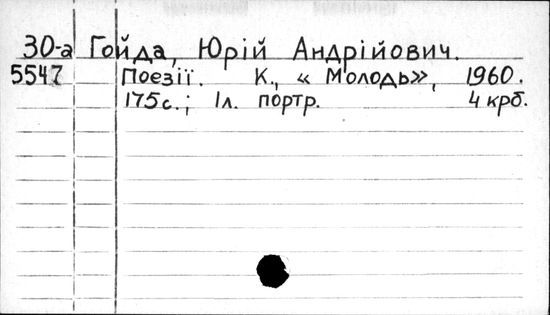 30-а Гойда, Юрій Андрійович.
5547 Поезії. К., «Молодь», 1960.
175с.; 1л. портр. 4 крб.